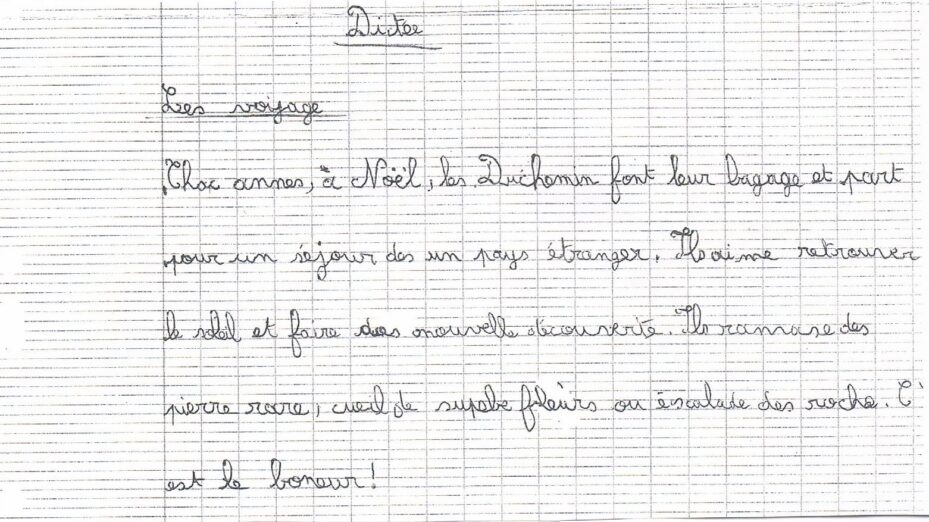 Dictée
Les voyage
Chac annes, à Noël, les Duchemin font leur bagage et part
pour un séjour des un pays étranger. Ils aime retrouver
le soleil et faire des nouvelle découverte. Ils ramase des
pierre rare, cueil de supebe fleurs ou éscalade des roche. C'
est le boneur !